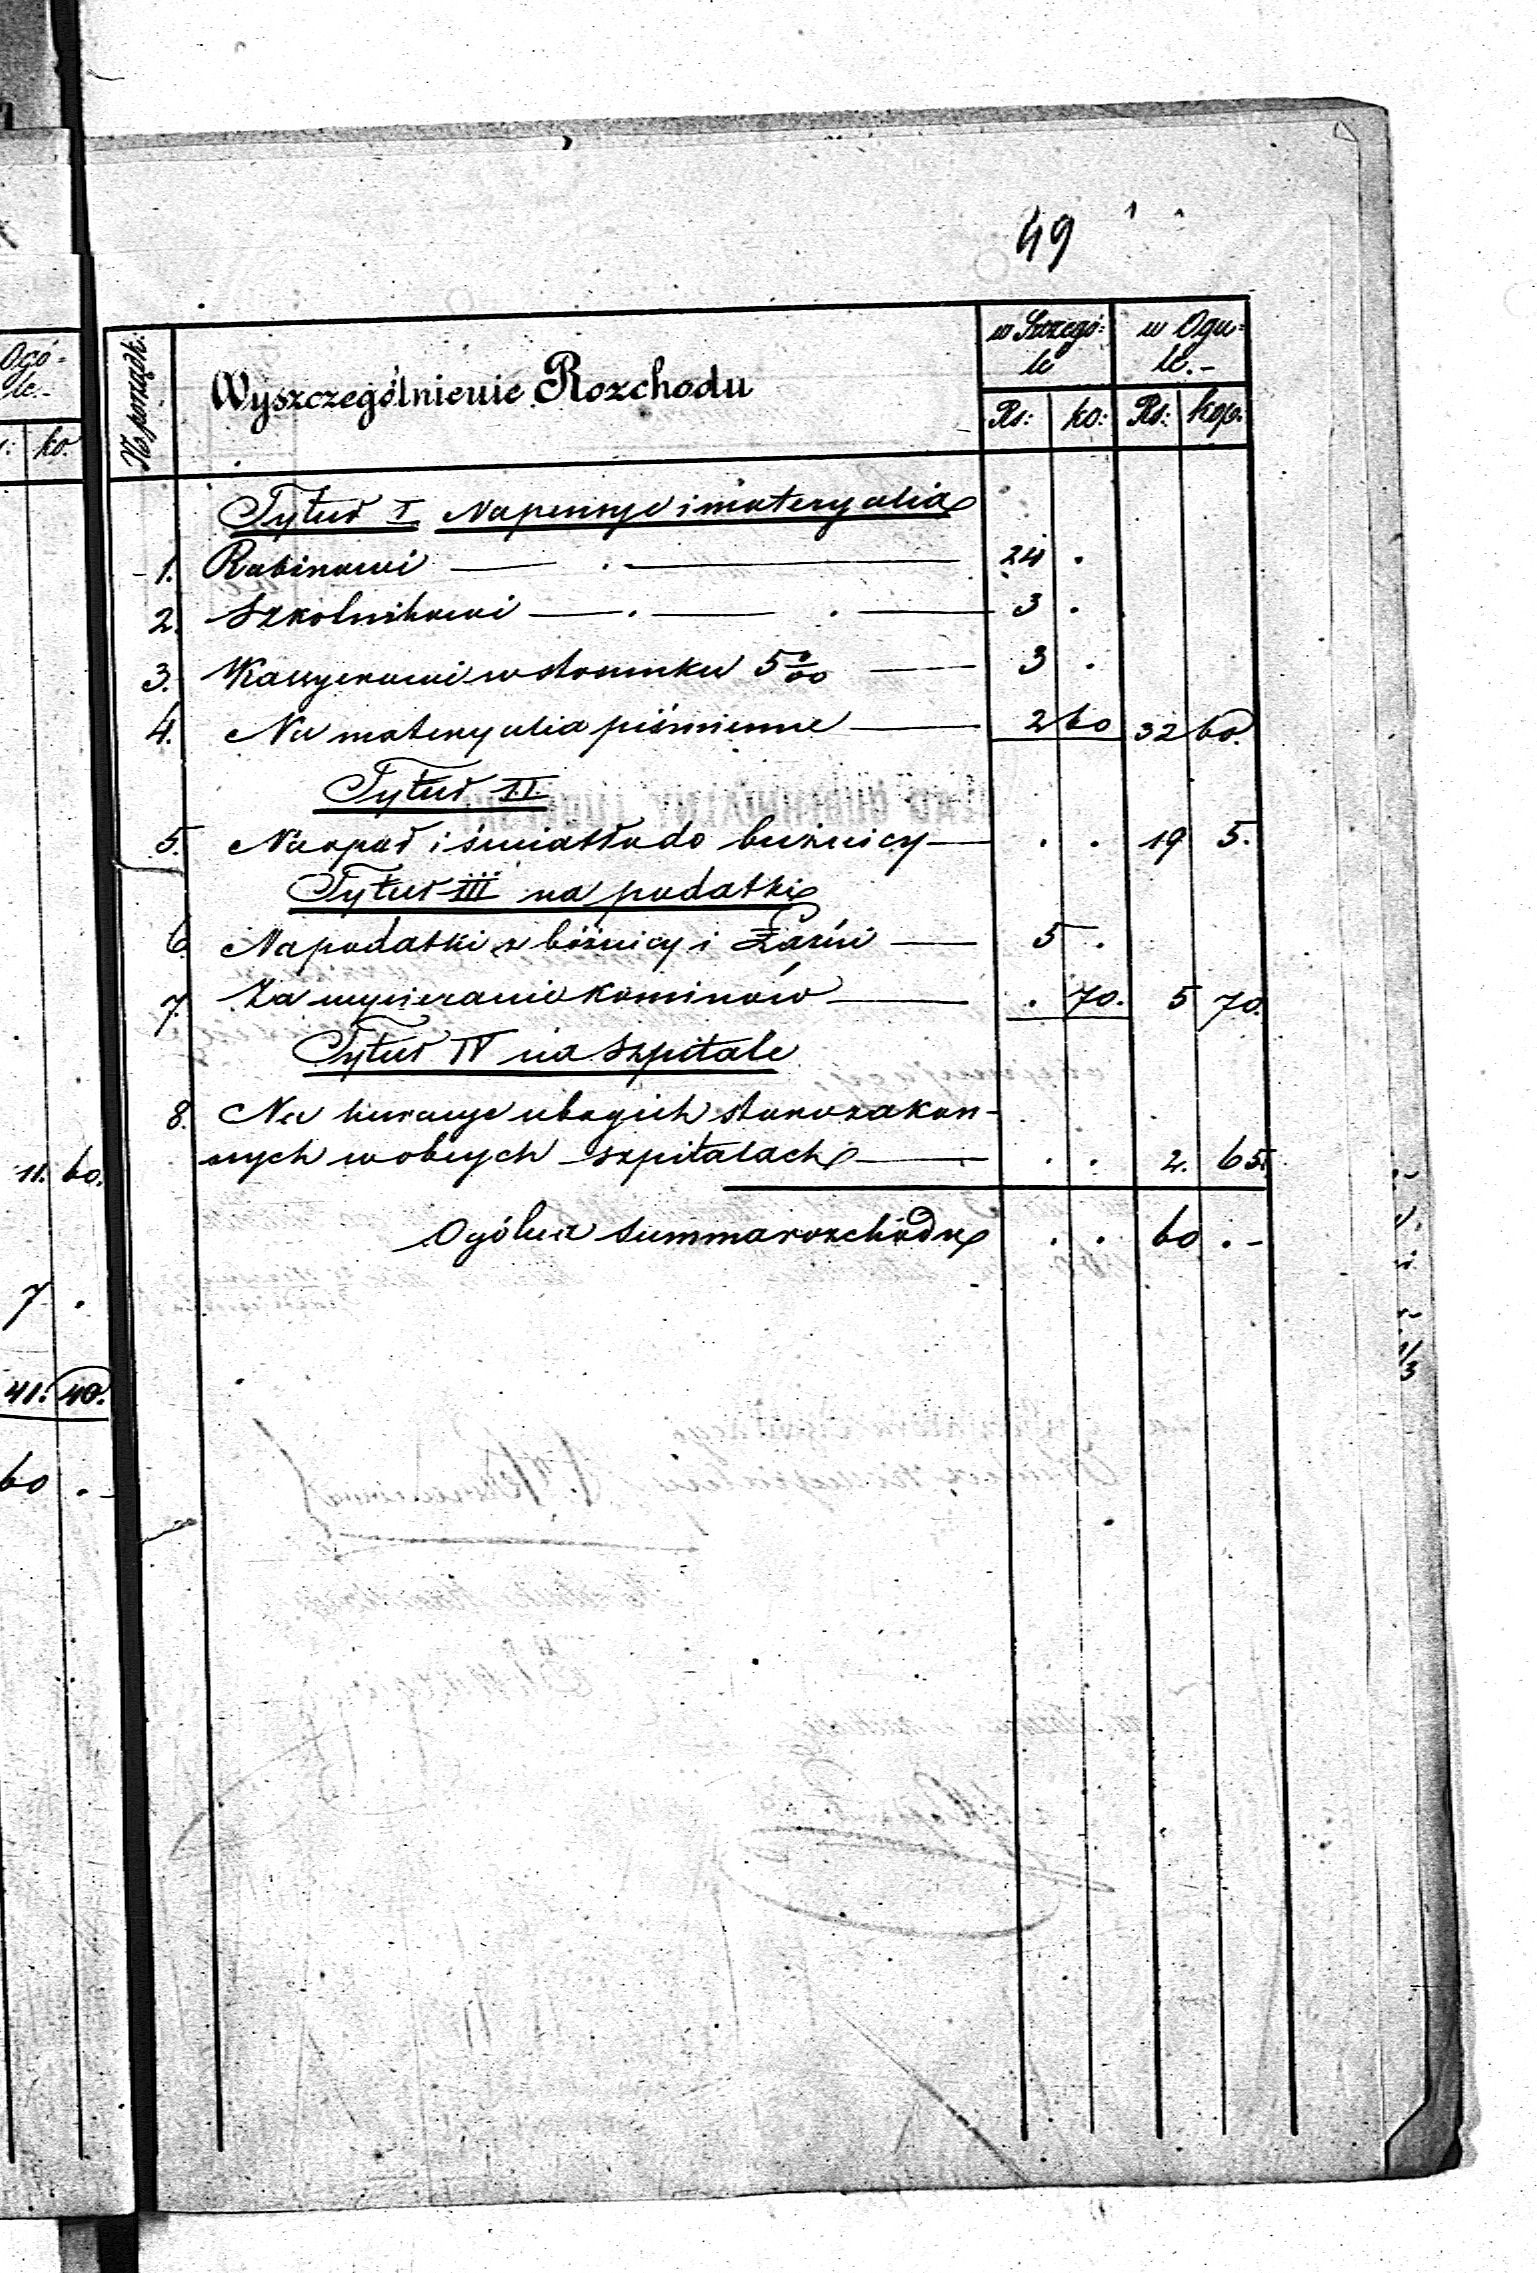 49
Ogó-
le.-
ko.
11. 60.
7 .
41. 40.
60 . -
N. porządk: Wyszczególnienie Rozchodu w Szczegó: w Ogu-
le le.-
Rs: ko: Rs: kop:
Tytuł I Na pensye i materyalia
1. Rabinowi 24 .
2. Szkolnikowi 3 .
3. Kassyerowi w stosunku 5 % 3 .
4. Na materyalia piśmienne 2 60 32 60.
Tytuł II.
5. Na opał i światło do bużnicy . . 19 5.
Tytuł III na podatki
6 Na podatki z bóżnicy i Łaźni 5 .
7. Za wycieranie kominów . 70. 5 70.
Tytuł IV na Szpitale
8. Na kuracye ubogich starozakon-
nych w obcych szpitalach . . 2. 65.
Ogólna summa rozchodu . . 60 . -